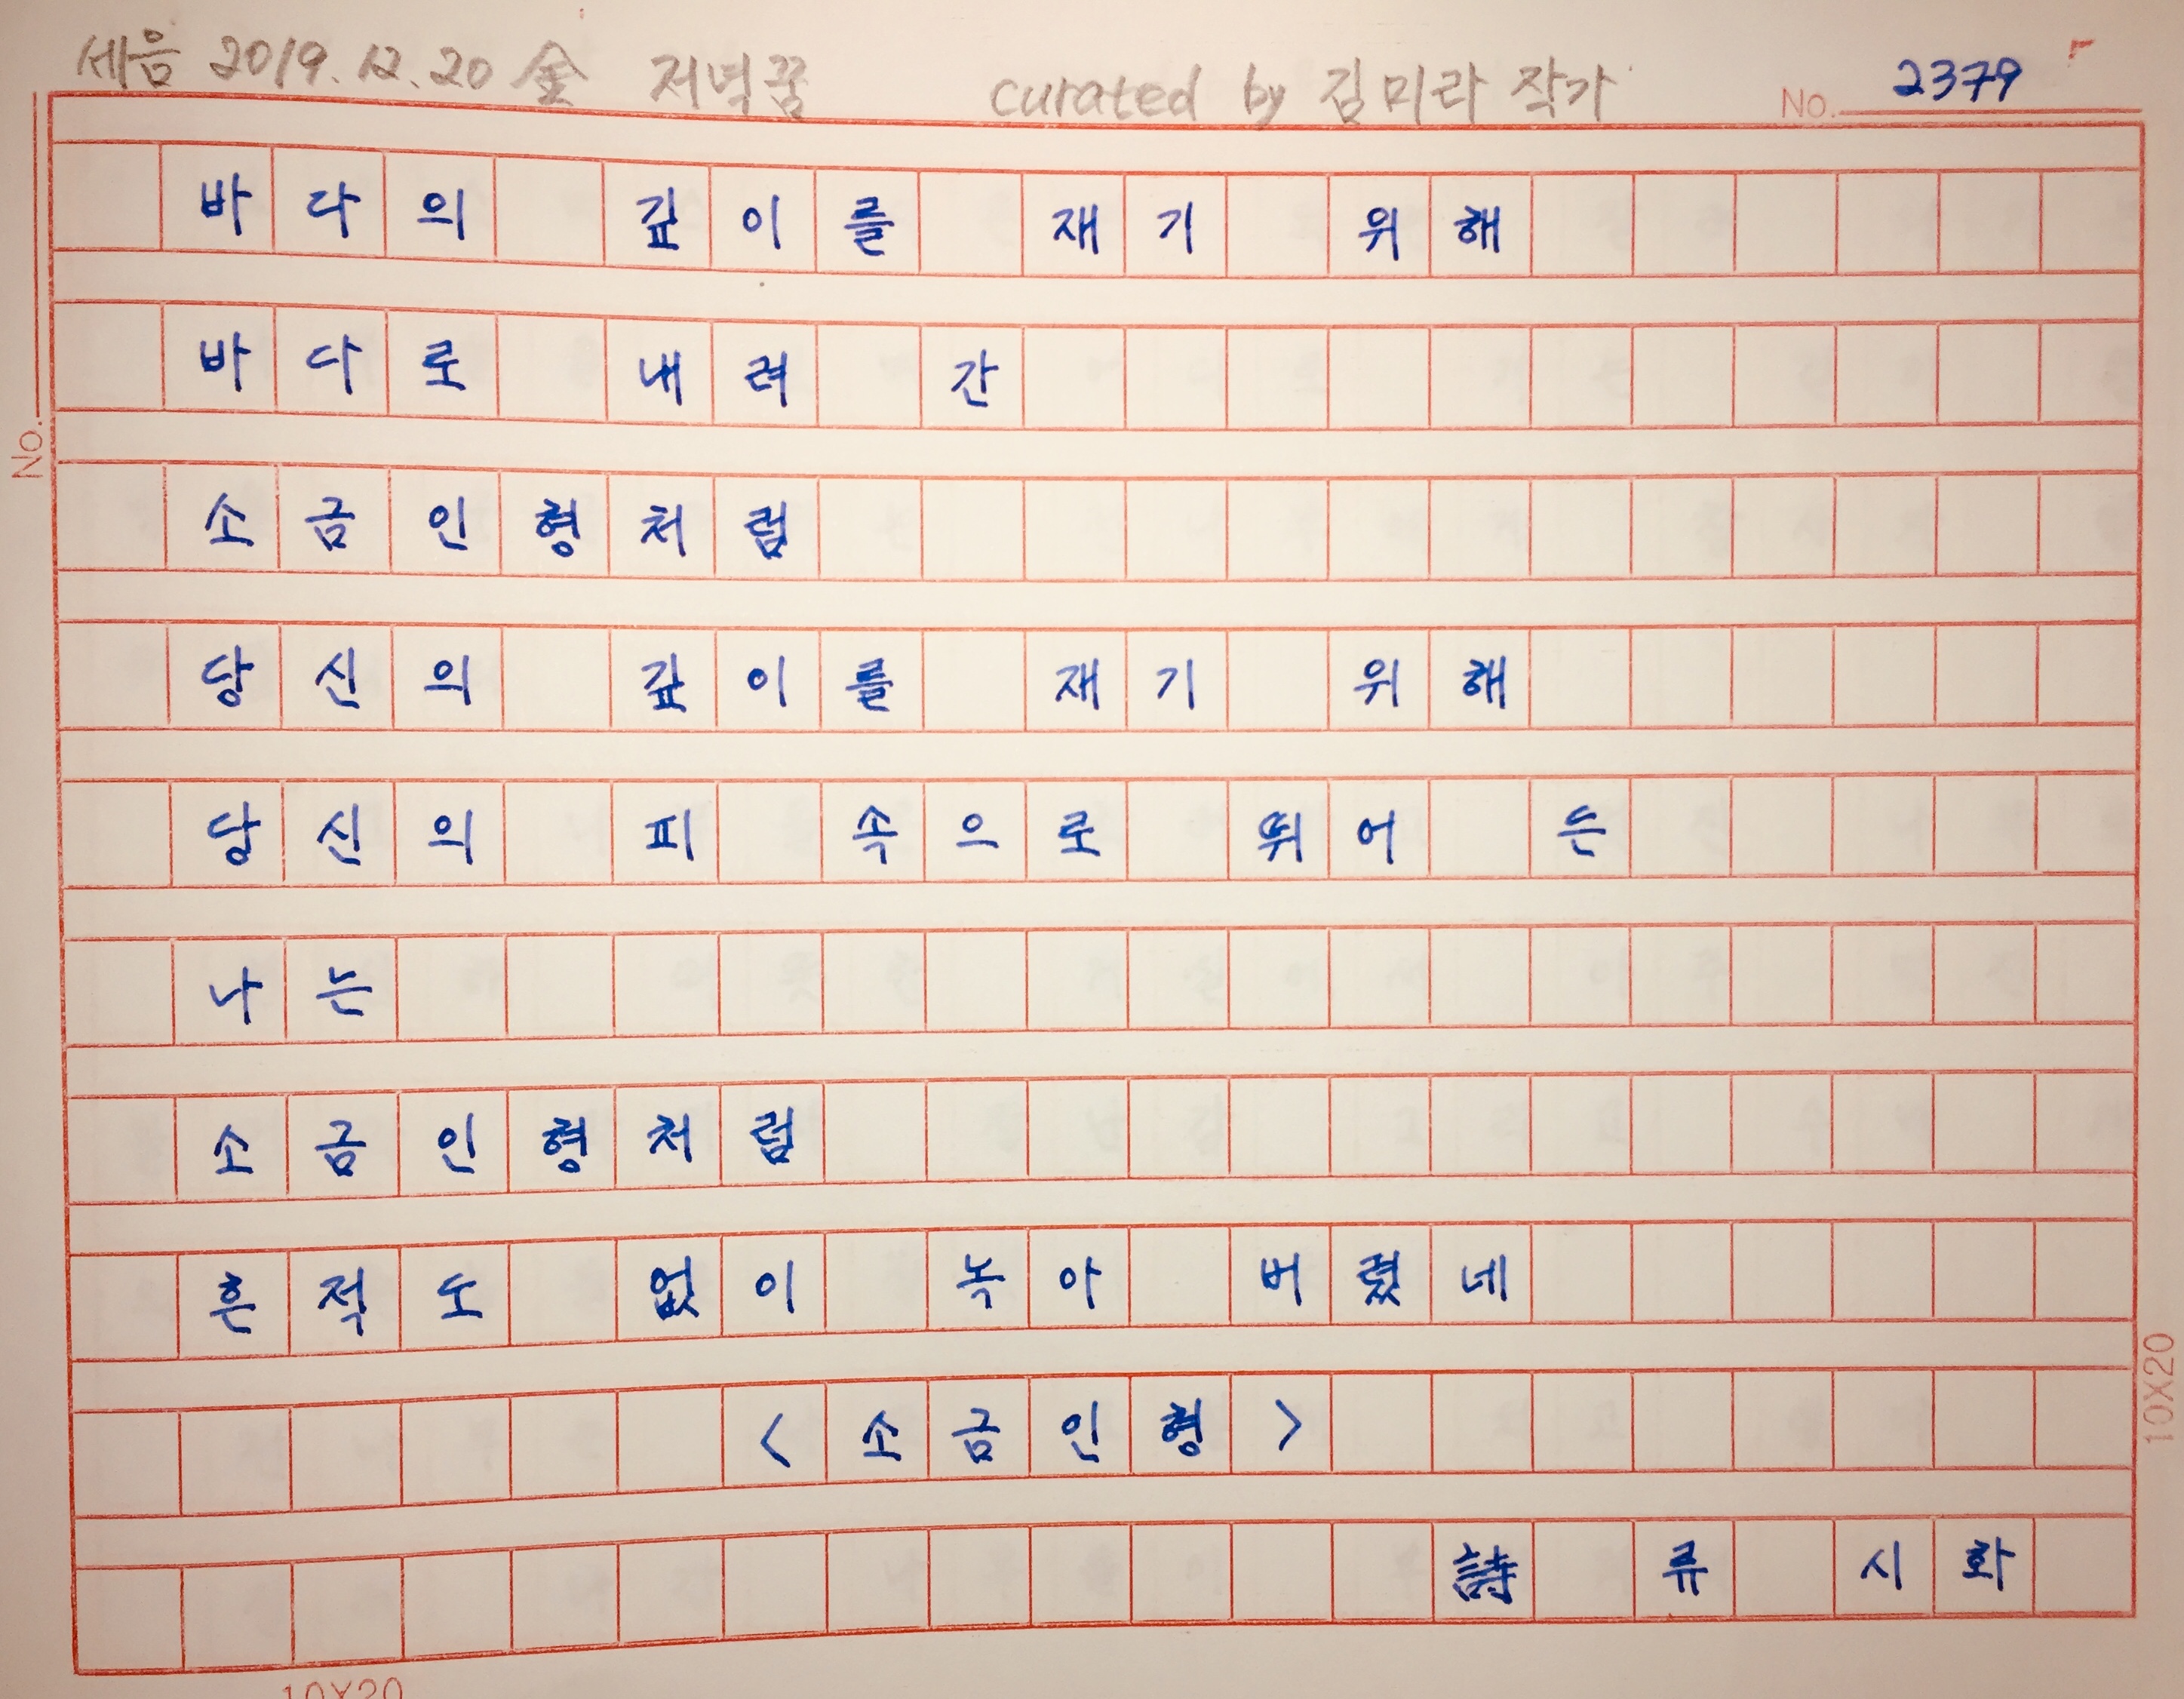 세음 2019.12.20 金 저녁꿈 curated by 김미라 작가
No. 2379
바다의 깊이를 재기 위해
바다로 내려 간
No.
소금인형처럼
당신의 깊이를 재기 위해
당신의 피 속으로 뛰어 든
나는
소금인형처럼
흔적도 없이 녹아 버렸네
<소금인형>
10X20
詩 류 시화
10X20